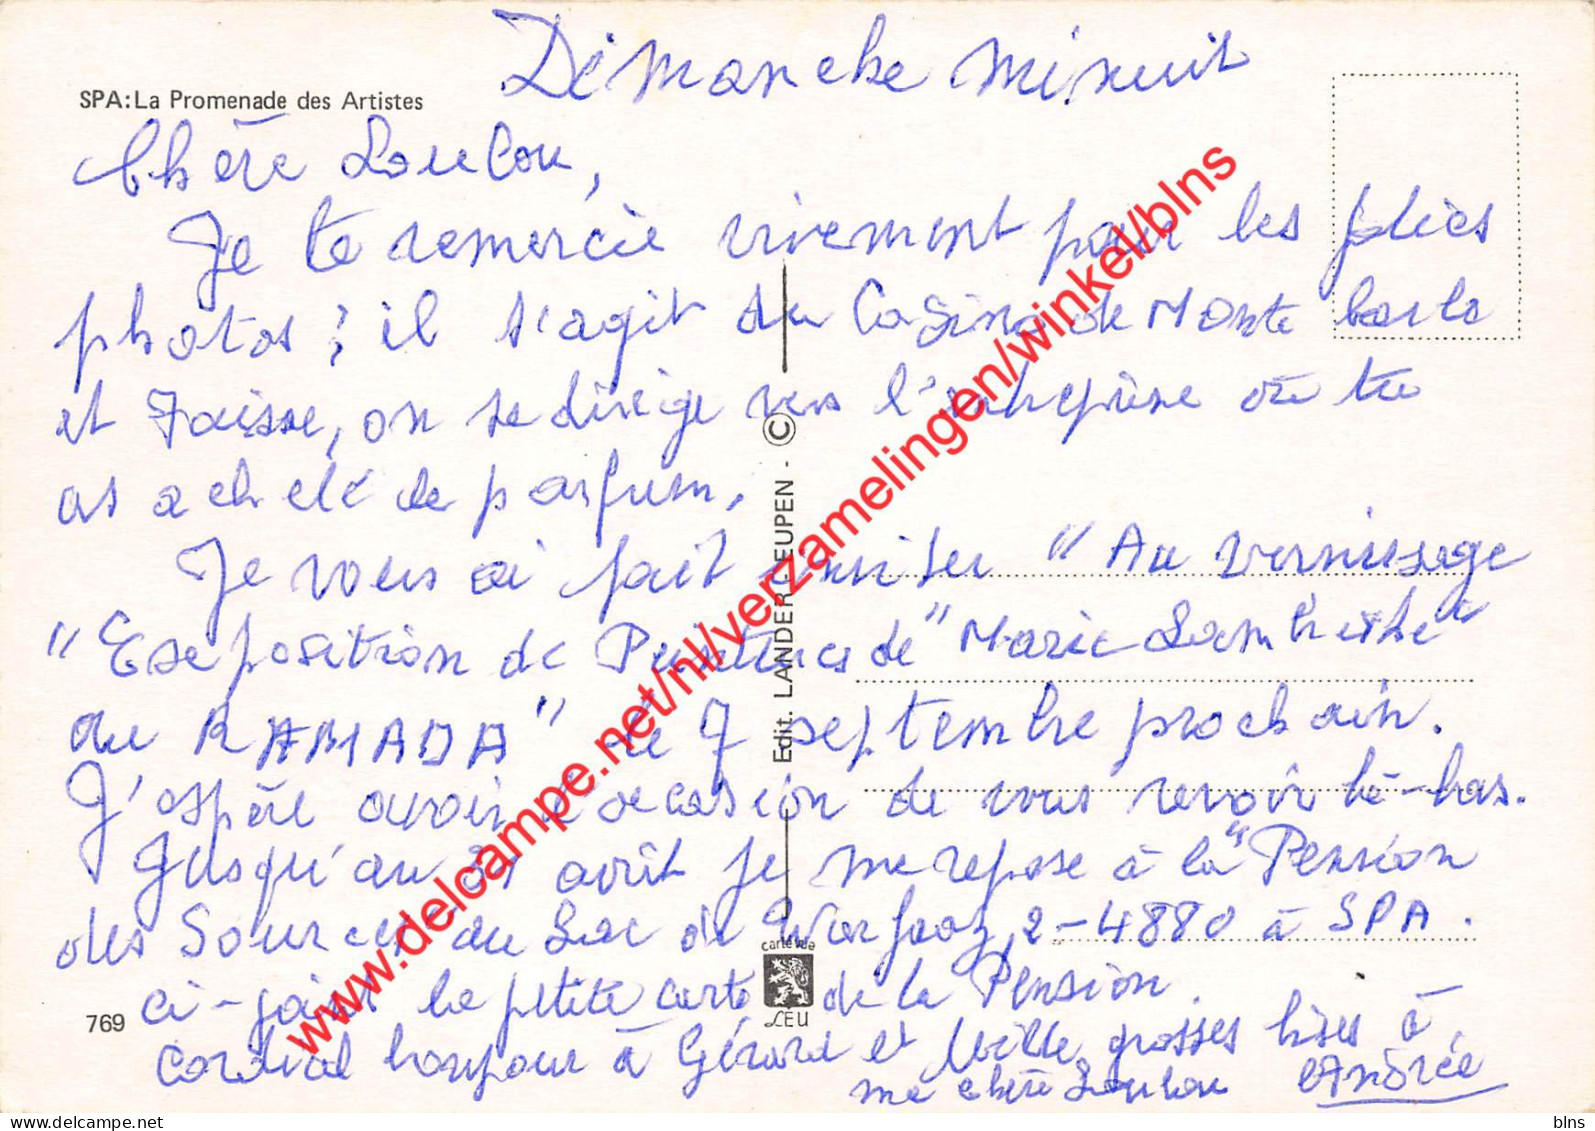 Dimanche minuit
SPA: La Promenade des Artistes
Chère Loulou,
Je te remercie vivement pour les jolies
photos ; il s'agit du Casino de Monte Carlo
et Jaisse, on se dirige vers l'entreprise où tu
as acheté de parfum.
Je vous ai fait inviter "Au vernissage
"Exposition de Peintures de" Marie Lambrethe"
au RAMADA" le 7 septembre prochain.
J'espère avoir l'occasion de vous revoir là-bas.
Jusqu'au 31 août je me repose à la "Pension
des Sources" au Lac de Warfaaz, 2-4880 à SPA.
ci-joint la petite carte de la Pension.
Cordial bonjour à Gérard et Mille grosses bises à
ma chère Loulou Andrée
769
Edit. LANDER - EUPEN - ©
carte vue
LEU
www.delcampe.net/nl/verzamelingen/winkel/blns
delcampe.net
blns